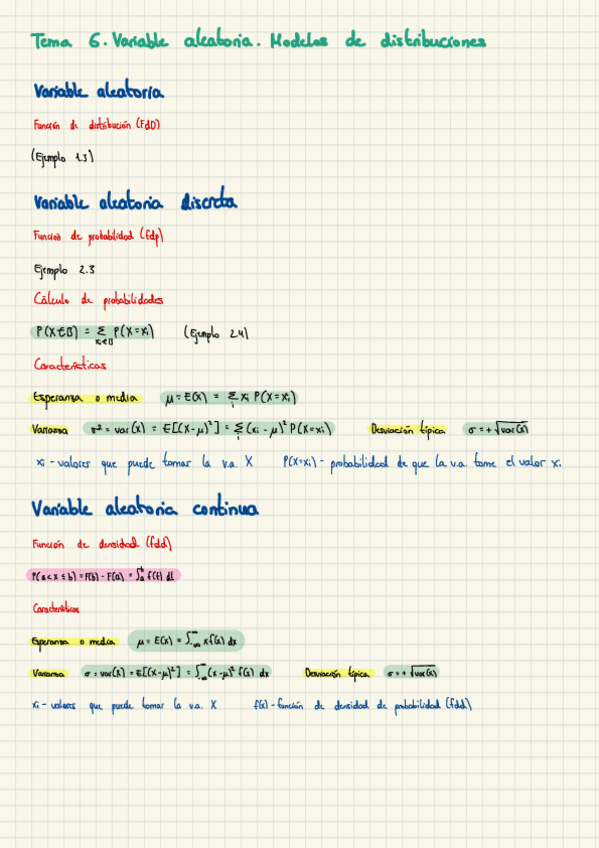 Tema 6. Variable aleatoria. Modelos de distribuciones
Variable aleatoria
Función de distribución (FdD)
(Ejemplo 1.3)
Variable aleatoria discreta
Función de probabilidad (fdp)
Ejemplo 2.3
Cálculo de probabilidades
P(X∈B) = Σ xi∈B P(X=xi) (Ejemplo 2.4)
Características
Esperanza o media μ = E(X) = Σi xi P(X=xi)
Varianza σ² = var(X) = E[(X-μ)²] = Σi (xi-μ)² P(X=xi) Desviación típica σ = +√var(X)
xi - valores que puede tomar la v.a. X P(X=xi) - probabilidad de que la v.a. tome el valor xi.
Variable aleatoria continua
Función de densidad (fdd)
P(a<x≤b) = F(b) - F(a) = ∫ₐᵇ f(t) dt
Características
Esperanza o media μ = E(X) = ∫₋∞^∞ x f(x) dx
Varianza σ = var(X) = E[(X-μ)²] = ∫₋∞^∞ (x-μ)² f(x) dx Desviación típica σ = +√var(X)
xi - valores que puede tomar la v.a. X f(x) - función de densidad de probabilidad (fdd)